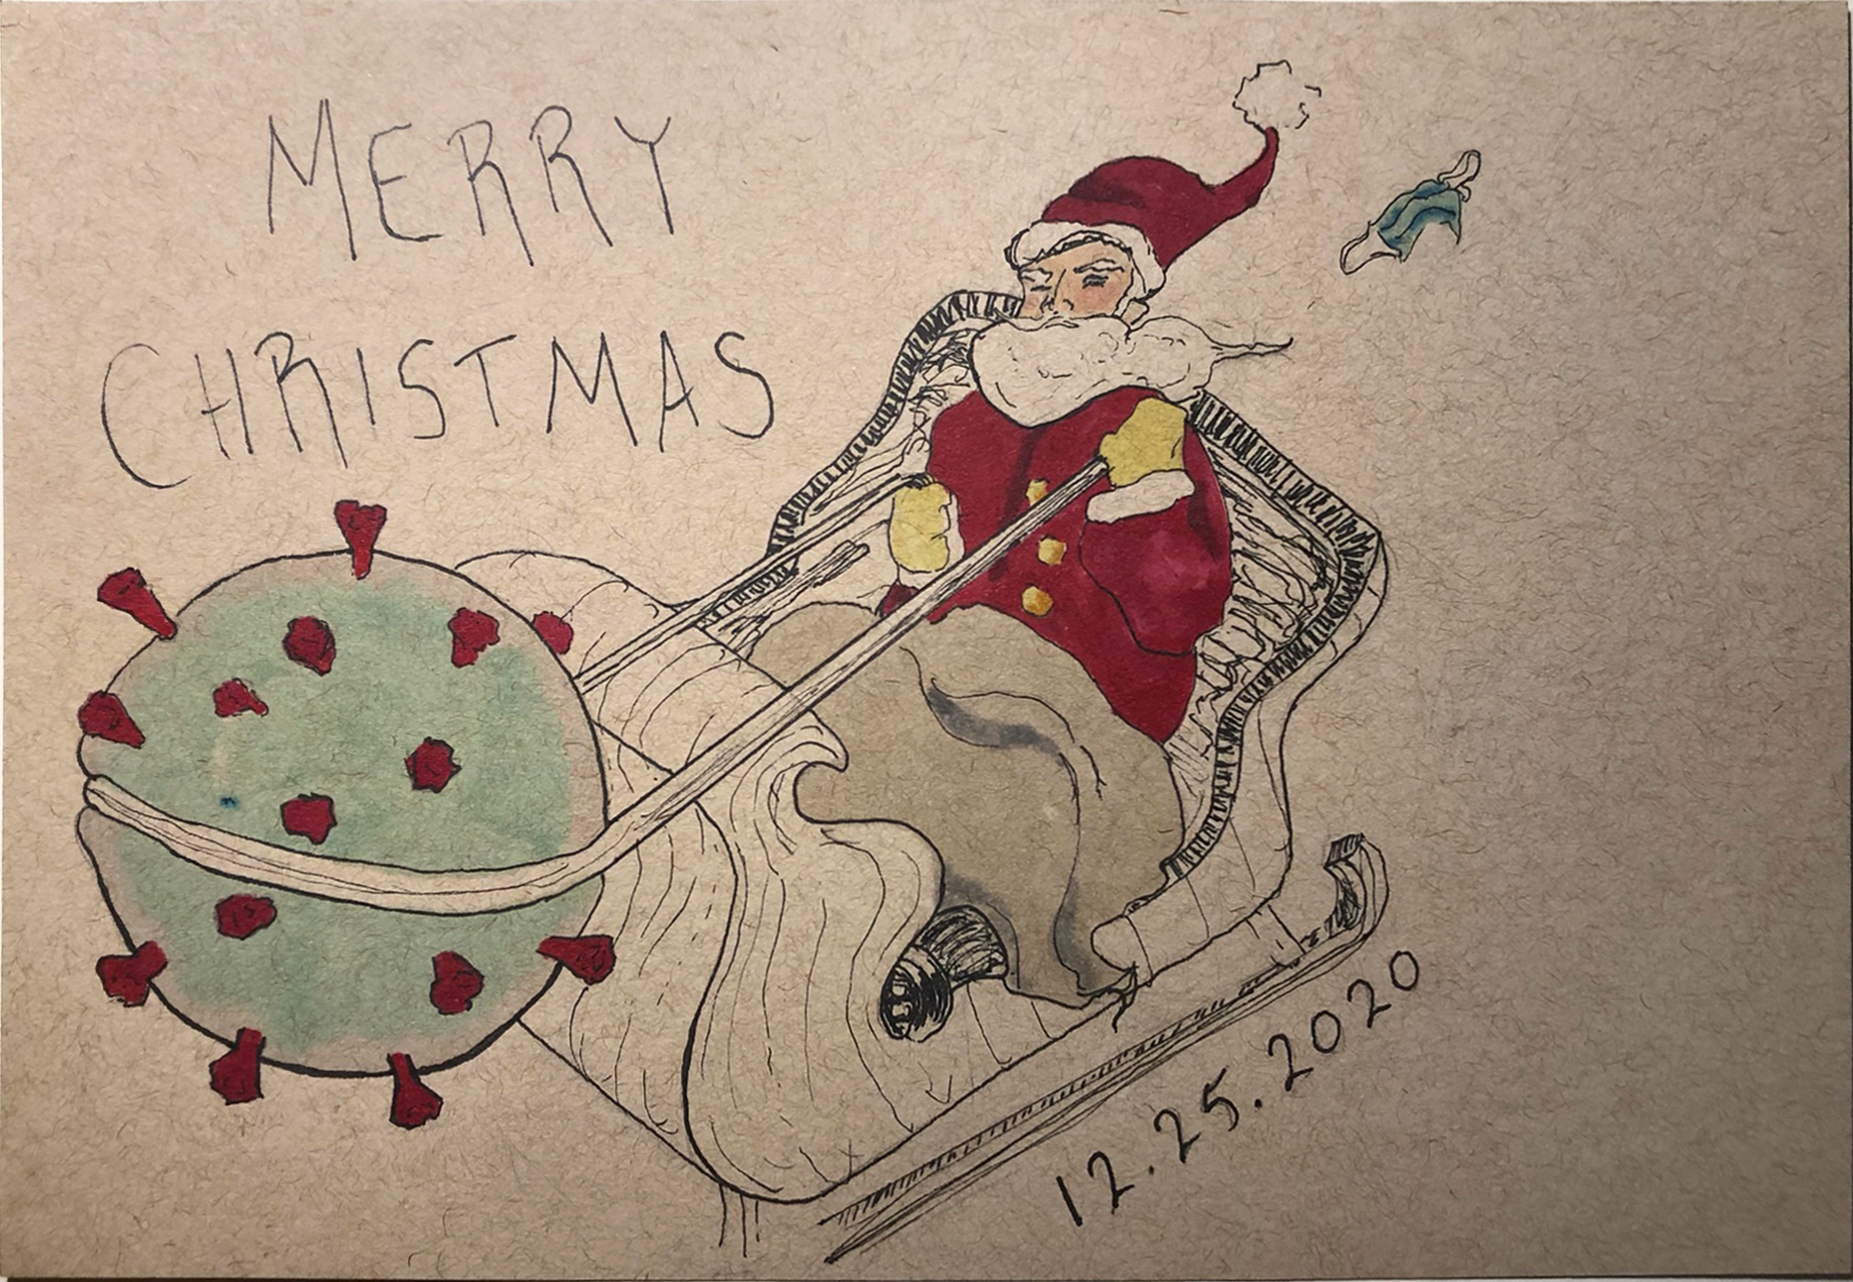 MERRY
CHRISTMAS
12.25.2020